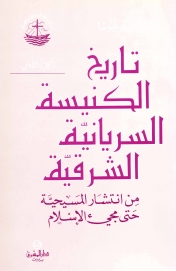 تاريخ
الكنيسة
السريانية
الشرقية
من انتشار المسيحية
حتى مجيء الإسلام
دار المشرق